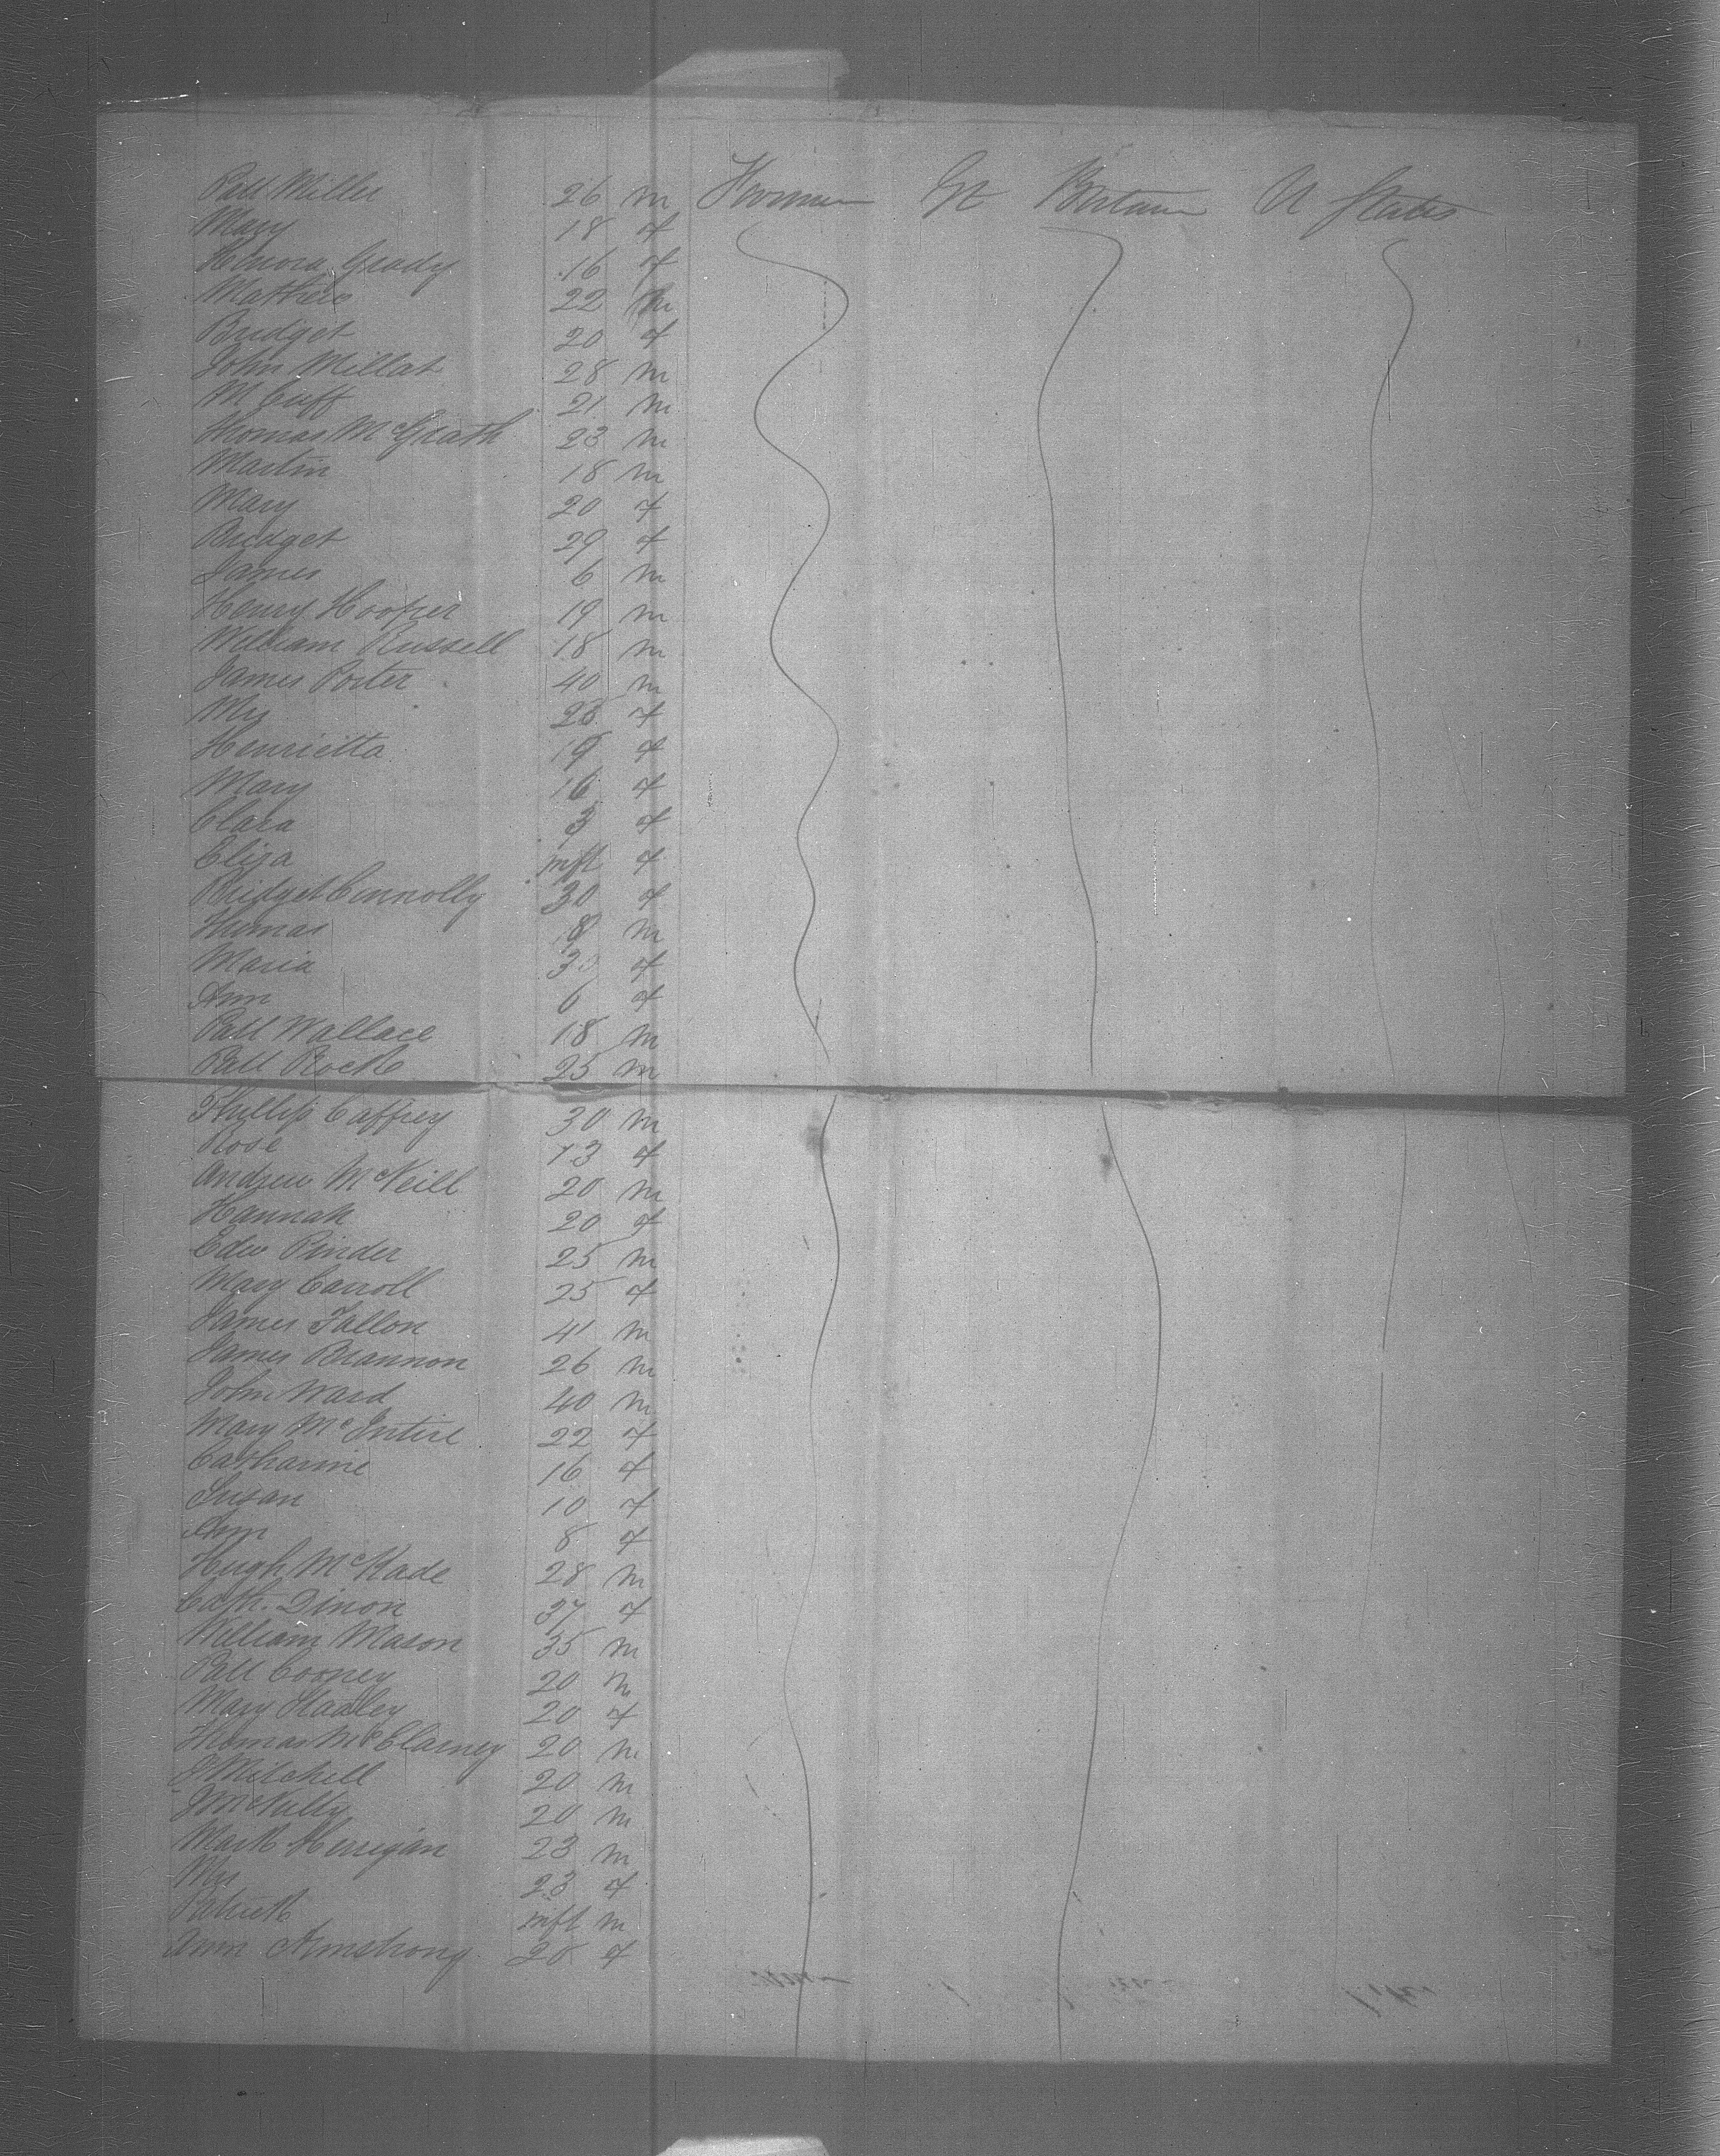 Patt Miller 26 m Gt Britain U States
Mary 18 f
Honora Grady 16 f
Mathew 22 m
Bridget 20 f
John Millat 28 m
M Cuff 21 m
Thomas McGrath 23 m
Martin 18 m
Mary 20 f
Bridget 29 f
James 6 m
Henry Hooper 19 m
William Russell 18 m
James Porter 40 m
Mrs 28 f
Henrietta 19 f
Mary 16 f
Clara 3 f
Eliza inft f
Bridget Connolly 30 f
Thomas 8 m
Maria 3 f
Ann 6 f
Patt Wallace 18 m
Patt Rock 25 m
Phillip Caffrey 30 m
Rose 13 f
Andrew McNeill 20 m
Hannah 20 f
Edw Pinder 25 m
Mary Carroll 25 f
James Fallon 41 m
James Brannon 26 m
John Ward 40 m
Mary McIntire 22 f
Catharine 16 f
Susan 10 f
Ann 8 f
Hugh McKade 28 m
Cath. Dinon 37 f
William Mason 35 m
Patt Cooney 20 m
Mary Hadley 20 f
Thomas McClarney 20 m
J Mitchell 20 m
J McNulty 20 m
Mark Kerrigan 23 m
Mrs 23 f
Patrick inft m
Ann Armstrong 20 f